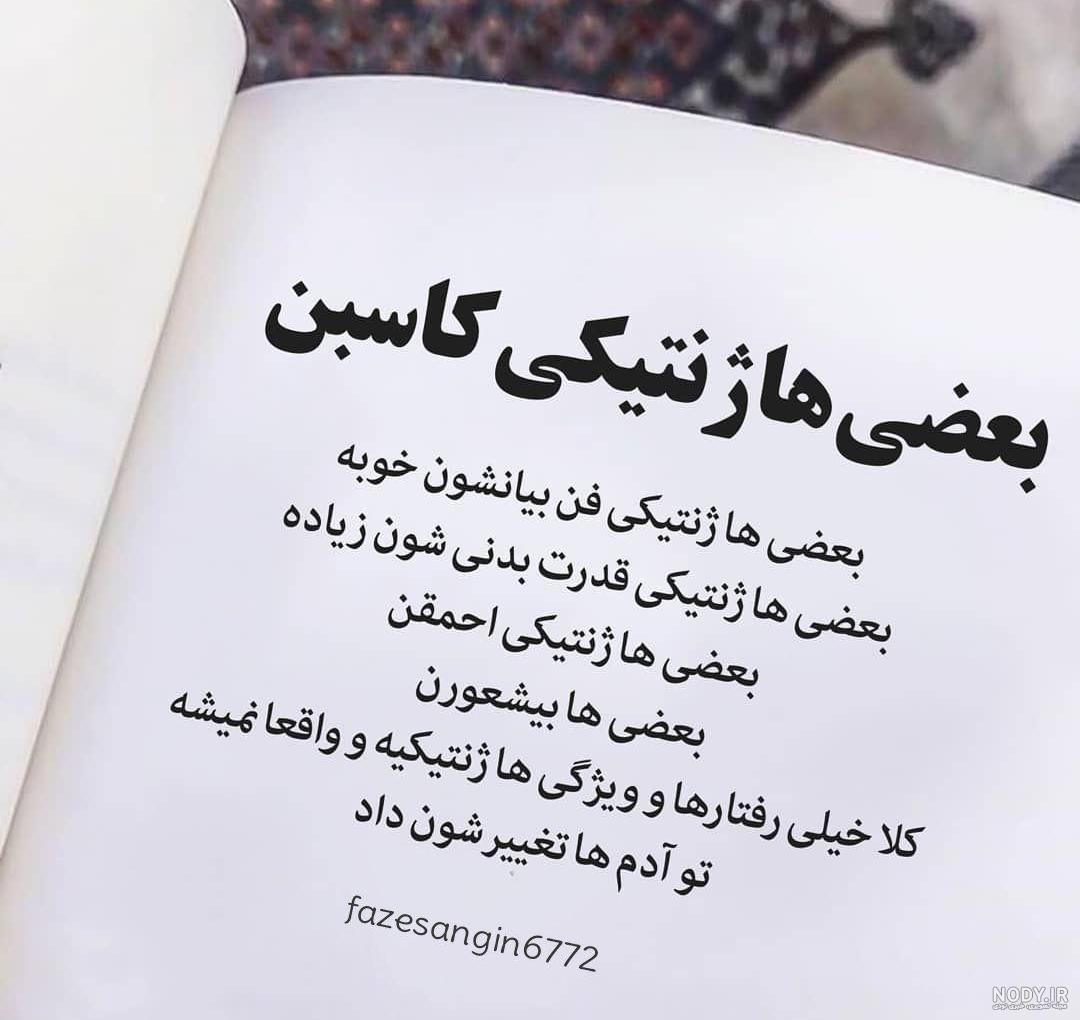 بعضی ها ژنتیکی کاسبن
بعضی ها ژنتیکی فن بیانشون خوبه
بعضی ها ژنتیکی قدرت بدنی شون زیاده
بعضی ها ژنتیکی احمقن
بعضی ها بیشعورن
کلا خیلی رفتارها و ویژگی ها ژنتیکیه و واقعا نمیشه
تو آدم ها تغییرشون داد
fazesangin6772
NODY.IR